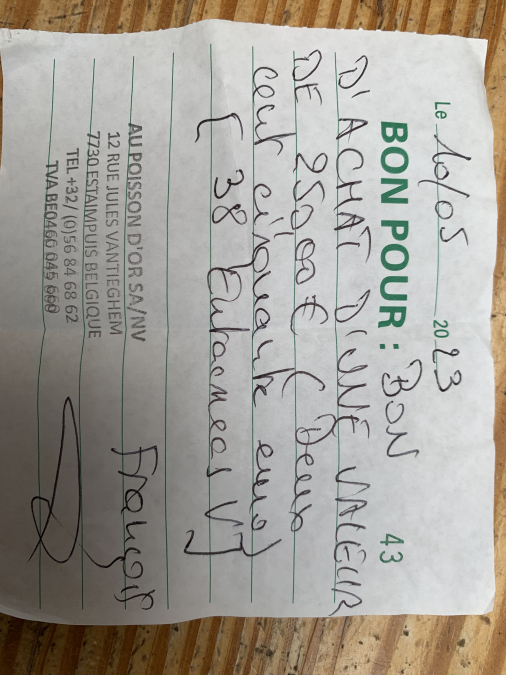 Le 10/05 20 23
BON POUR : BON 43
D'ACHAT D'UNE VALEUR
DE 250,00 € ( Deux
cent cinquante euro)
[ 38 V]
AU POISSON D'OR SA/NV
12 RUE JULES VANTIEGHEM
7730 ESTAIMPUIS BELGIQUE
TEL +32/ (0)56 84 68 62
TVA BE0460 045 660
François